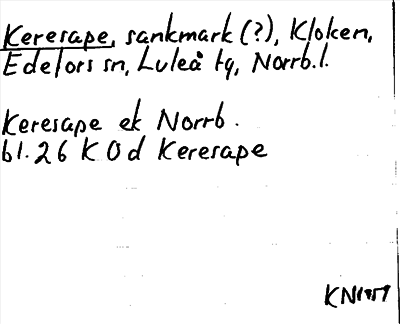 Keresape, sankmark (?), Kloken,
Edefors sn, Luleå tg, Norrb.l.
Keresape ek Norrb.
bl. 26 K O d Keresape